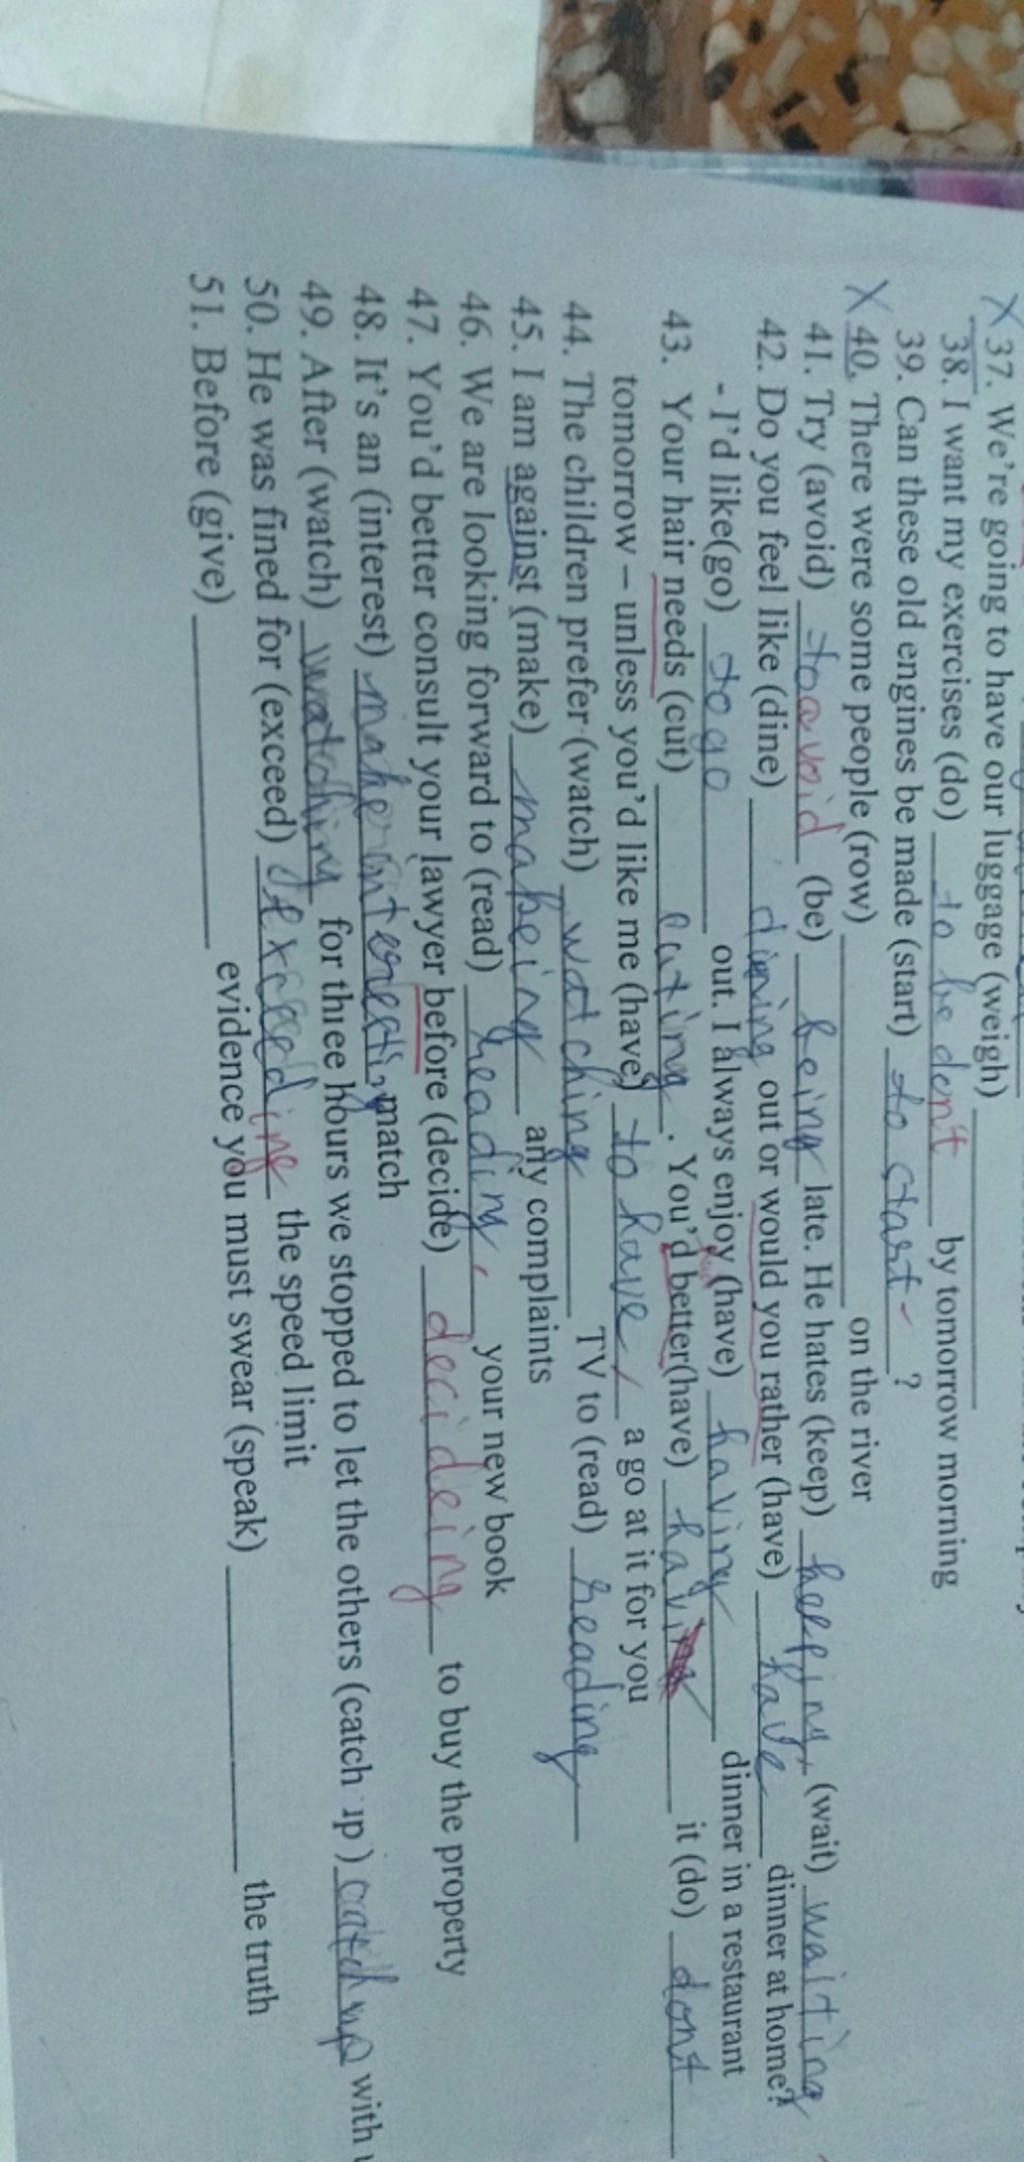 X 37. We're going to have our luggage (weigh) ____
38. I want my exercises (do) to be don't by tomorrow morning
39. Can these old engines be made (start) to start ?
X 40. There were some people (row) ____ on the river
41. Try (avoid) to avoid (be) being late. He hates (keep) (wait) waiting
42. Do you feel like (dine) dining out or would you rather (have) have dinner at home?
- I'd like(go) to go out. I always enjoy (have) having dinner in a restaurant
43. Your hair needs (cut) cuting. You'd better(have) having it (do) dont
tomorrow – unless you'd like me (have) to have a go at it for you
44. The children prefer (watch) watching TV to (read) reading
45. I am against (make) makeing any complaints
46. We are looking forward to (read) reading your new book
47. You'd better consult your lawyer before (decide) decideing to buy the property
48. It's an (interest) match
49. After (watch) watching for three hours we stopped to let the others (catch up) catch up with
50. He was fined for (exceed) exceeding the speed limit
51. Before (give) ____ evidence you must swear (speak) ____ the truth